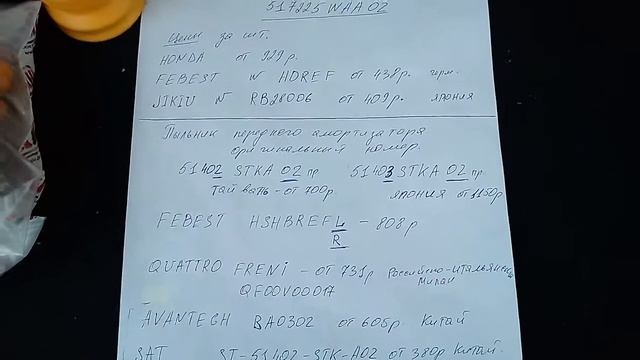 517225 WAA 02
Цены за шт.
HONDA от 929р.
FEBEST № HDREF от 438р. герм.
JIKIU № RB28006 от 409р. япония
Пыльник переднего амортизатора
оригинальный номер.
51402 STKA 02 пр 51403 STKA 02 пр.
Тайвань - от 700р. япония от 1150р
FEBEST HSHBREFL - 808р
R
QUATTRO FRENI - от 731р Российско-итальянск
QF00V00017 Милан
AVANTECH BA0302 от 605р. Китай
SAT ST-51402-STK-A02 от 380р Китай.